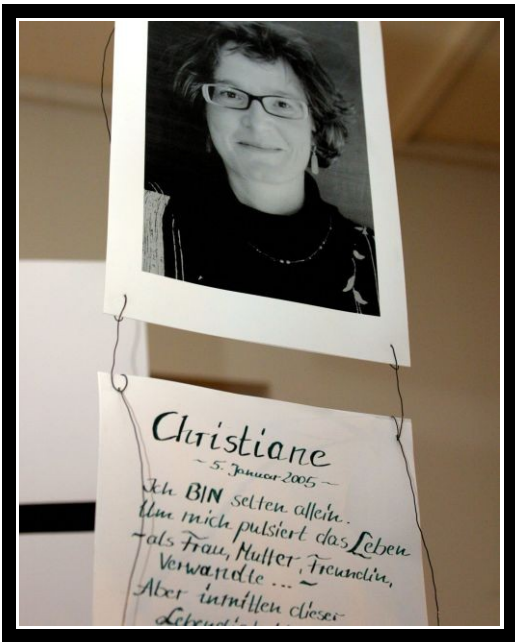 Christiane
~ 5. Januar 2005 ~
Ich BIN selten allein.
Um mich pulsiert das Leben
~als Frau, Mutter, Freundin,
Verwandte ... ~
Aber inmitten dieser